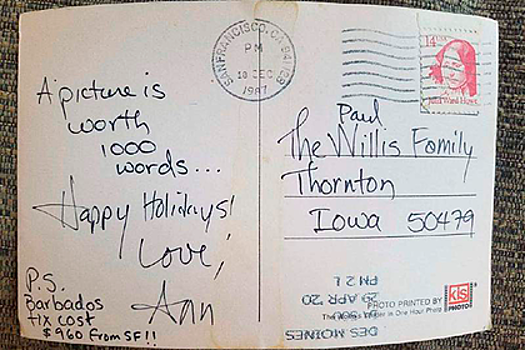 SAN FRANCISCO, CA
PM
10 DEC
1987
14 USA
Julia Ward Howe
A picture is
worth
1000
words...
Happy Holidays!
Love,
Ann
P.S.
Barbados
tix cost
$960 from SF!!
Paul
The Willis Family
Thornton
Iowa 50479
DES MOINES
29 APR '20
PM 2 L
PHOTO PRINTED BY
kis
PHOTO
in One Hour Photo